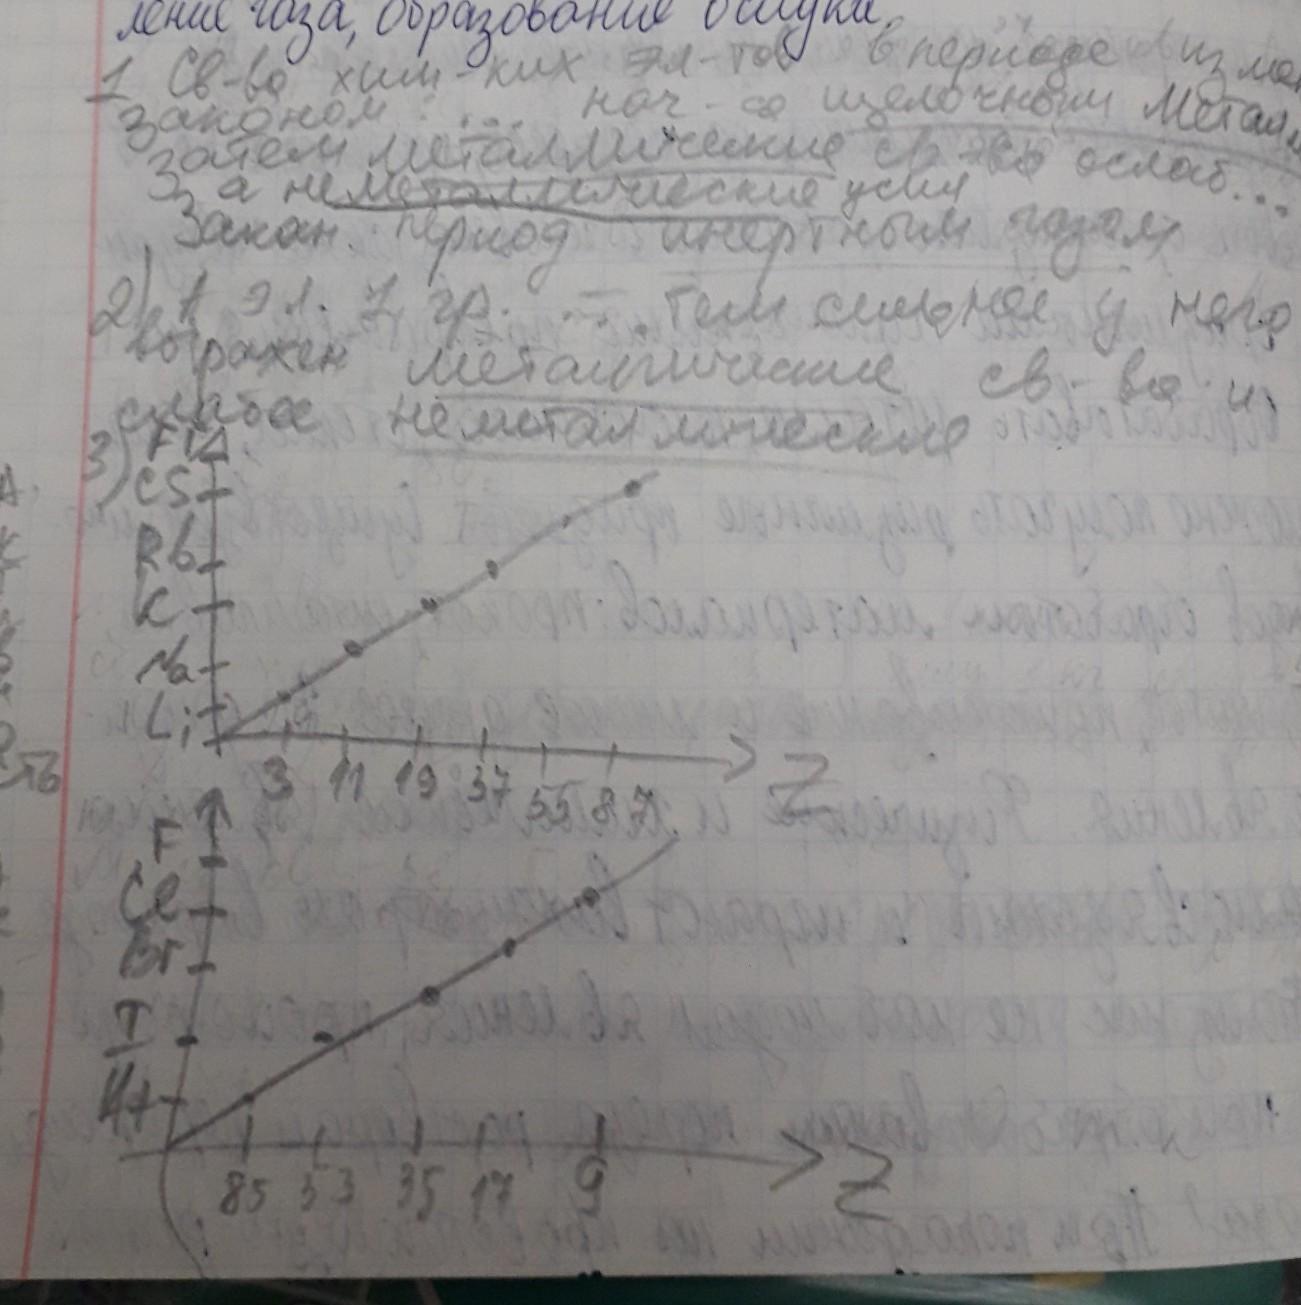 ление газа, образование осадка.
1 Св-во хим-ких эл-тов в периоде измен
законом: ... нач-ся щелочным Металл
затем металлические св-ва ослаб...
За неметаллические усил
Закан. период инертным газам
2) 1 эл. 7 гр. ... тем сильнее у него
выражен металлические св-ва и
слабее неметаллические
3) Fr
Cs
Rb
K
Na
Li
3 11 19 37 55 87 Z
F
Cl
Br
I
At
85 53 35 17 9 Z